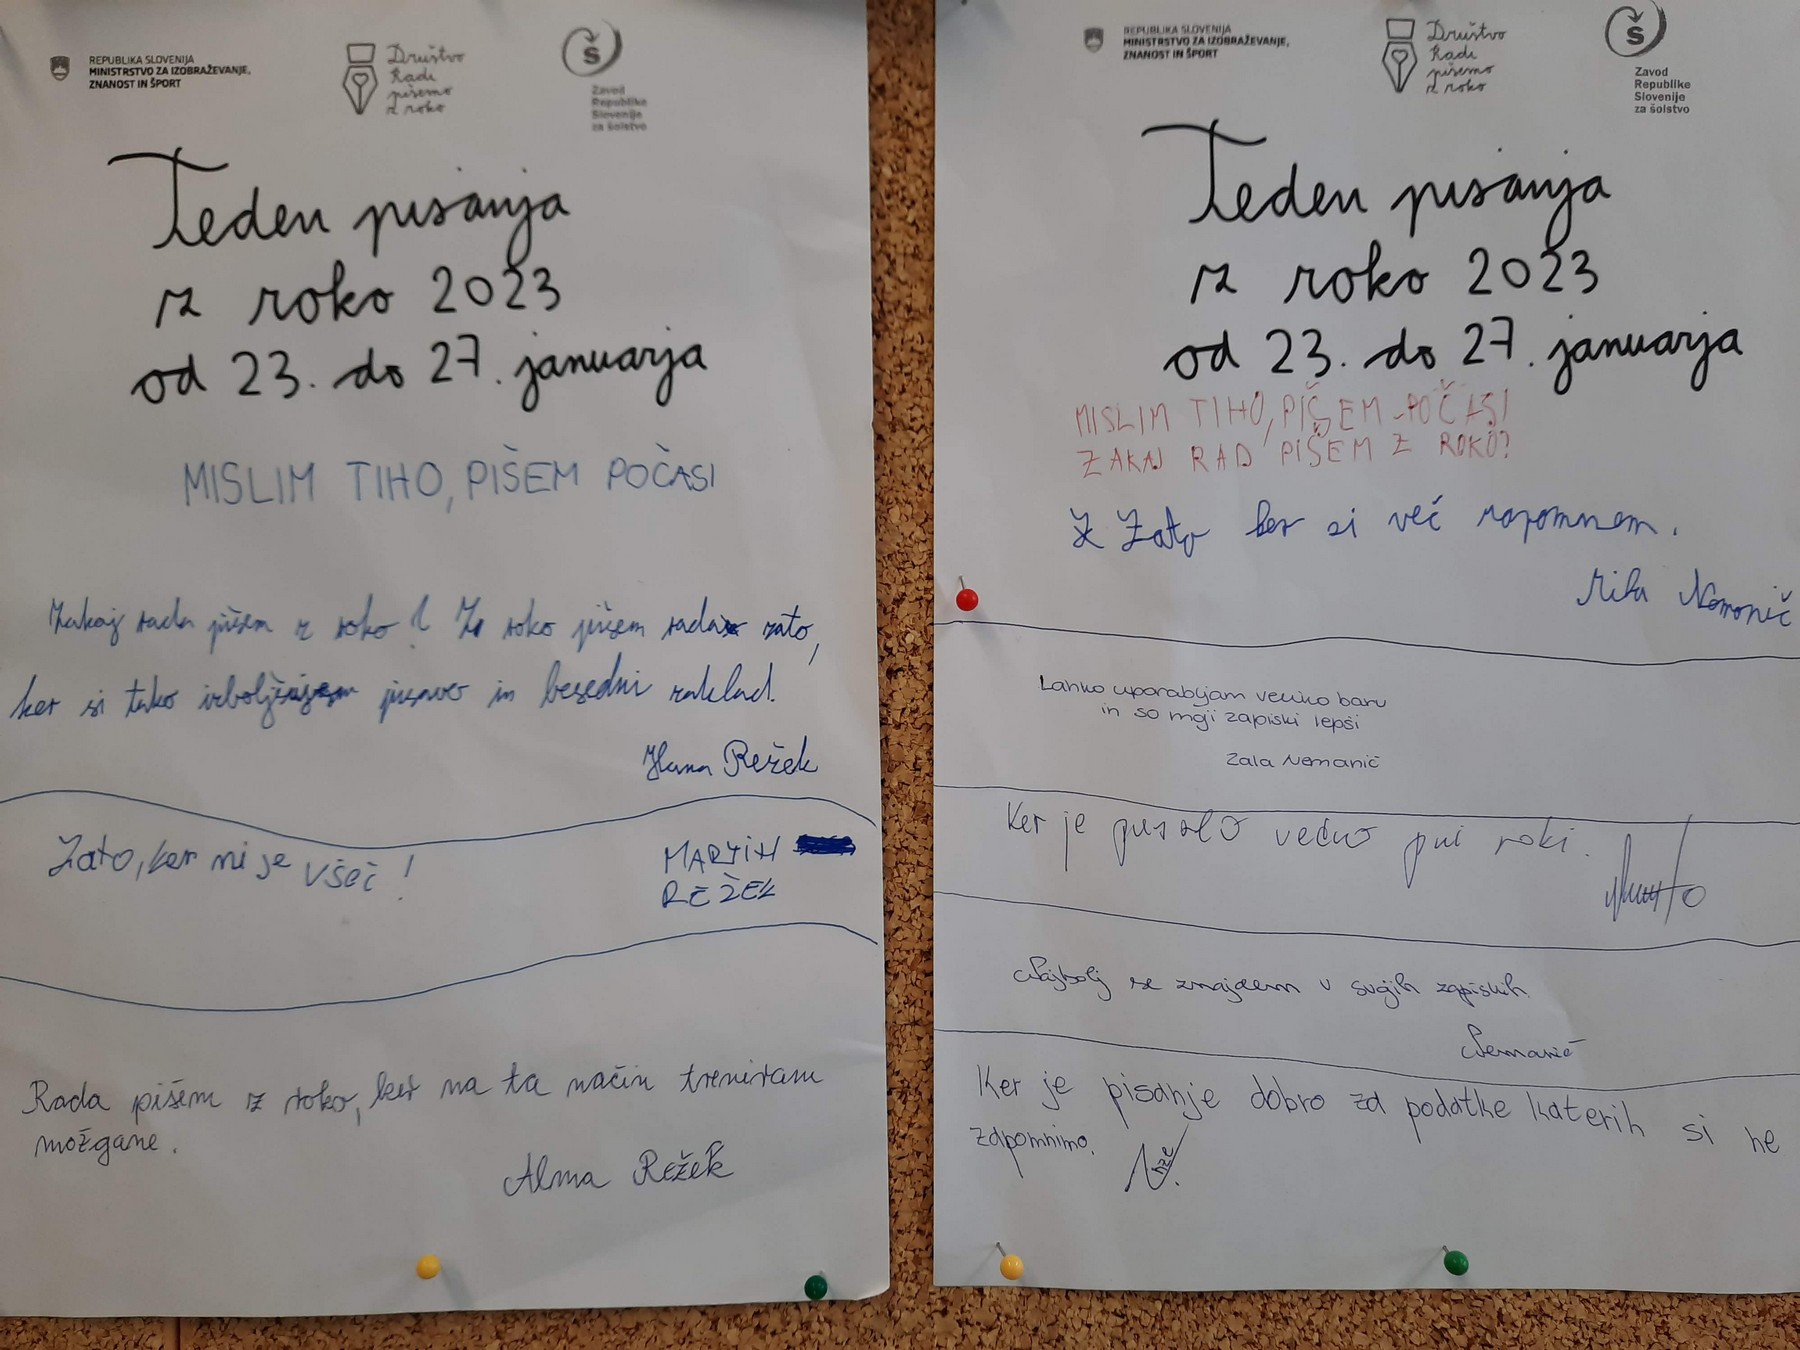 REPUBLIKA SLOVENIJA
MINISTRSTVO ZA IZOBRAŽEVANJE,
ZNANOST IN ŠPORT
Društvo
Radi
pišemo
z roko
Š
Zavod
Republike
Slovenije
za šolstvo
Teden pisanja
z roko 2023
od 23. do 27. januarja
MISLIM TIHO, PIŠEM POČASI
Zakaj rada pišem z roko? Z roko pišem rada zato,
ker si tako izboljšujem pisavo in besedni zaklad.
Hana Režek
Zato, ker mi je všeč!
MARTIN
REŽEK
Rada pišem z roko, ker na ta način treniram
možgane.
Alma Režek
REPUBLIKA SLOVENIJA
MINISTRSTVO ZA IZOBRAŽEVANJE,
ZNANOST IN ŠPORT
Društvo
Radi
pišemo
z roko
Š
Zavod
Republike
Slovenije
za šolstvo
Teden pisanja
z roko 2023
od 23. do 27. januarja
MISLIM TIHO, PIŠEM POČASI
ZAKAJ RAD PIŠEM Z ROKO?
Zato ker si več zapomnem.
Nemanič
Lahko uporabljam veliko barv
in so moji zapiski lepši
Zala Nemanič
Ker je pisalo vedno pri roki.
Najbolj se znajdem v svojih zapiskih.
Nemanič
Ker je pisanje dobro za podatke katerih si ne
zapomnimo.